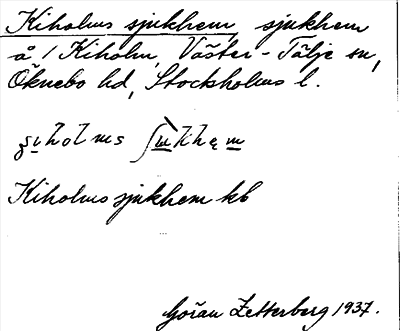 Kiholms sjukhem, sjukhem
å / Kiholm, Väster-Tälje sn,
Öknebo hd, Stockholms l.
Kiholms sjukhem kb
Göran Zetterberg 1937.